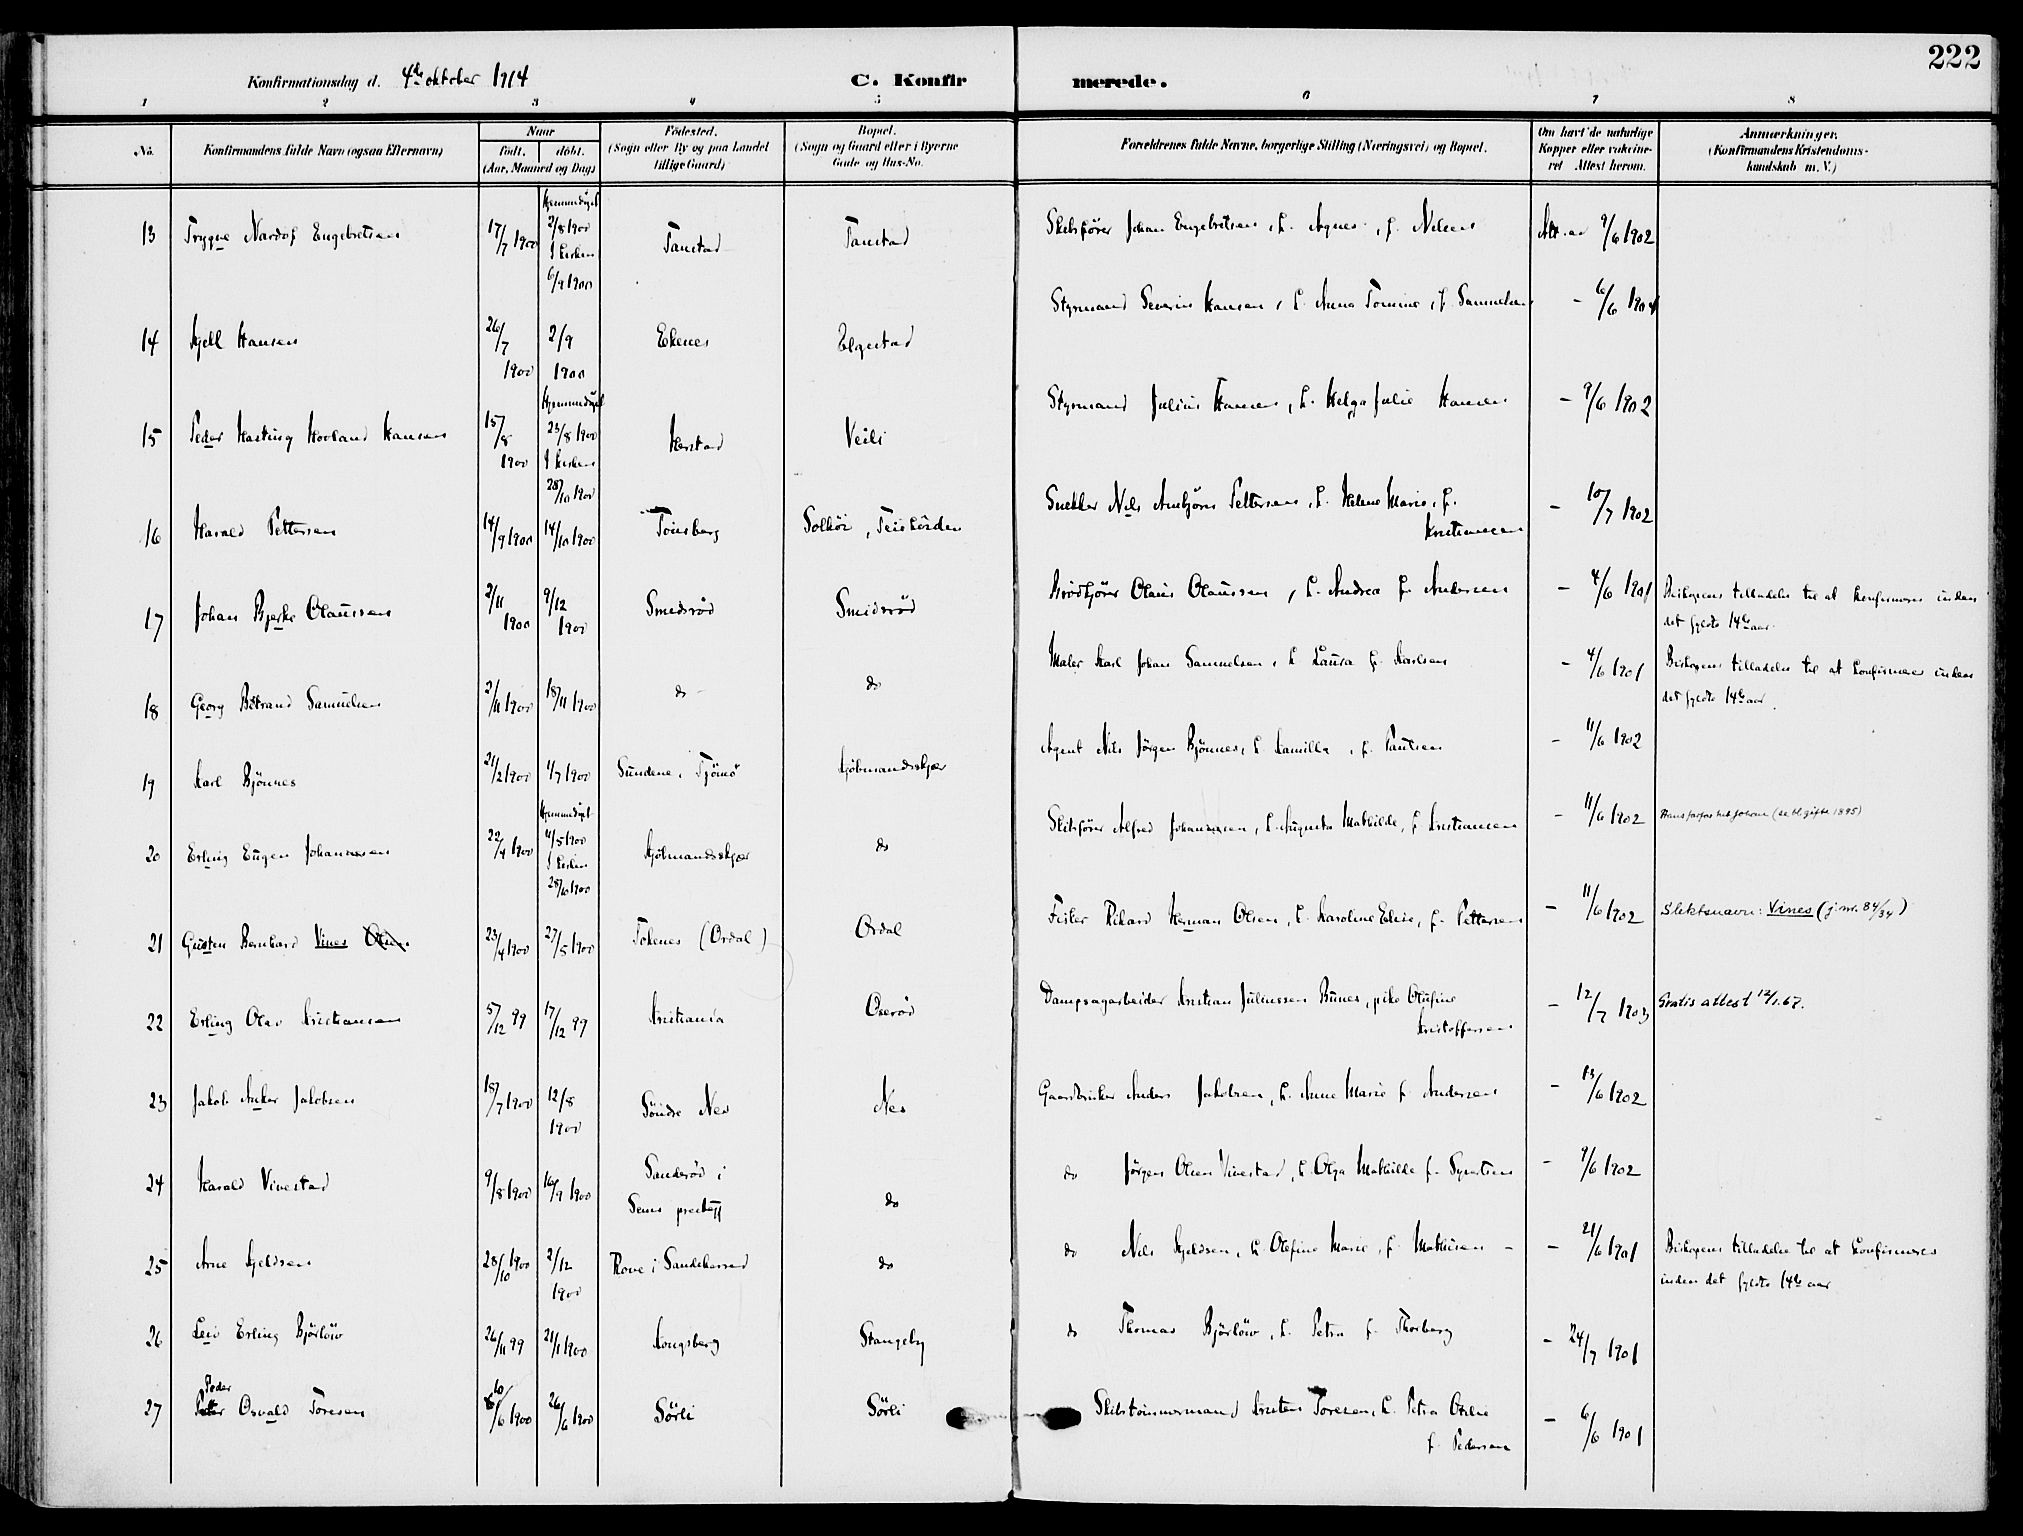 222
Konfirmationsdag d. 4de oktober 1914
C. Konfirmerede.
1 2 3 4 5 6 7 8
No.
Konfirmandens fulde Navn (ogsaa Efternavn)
Naar
födt. döbt.
(Aar, Maaned og Dag)
Födested.
(Sogn eller By og paa Landet
tillige Gaard)
Bopæl.
(Sogn og Gaard eller i Byerne
Gade og Hus-No.
Forældrenes fulde Navne, borgerlige Stilling (Næringsvei) og Bopæl.
Om havt de naturlige
Kopper eller vaccine-
ret Attest herom.
Anmærkninger.
(Konfirmandens Kristendoms-
kundskab m. V.)
13 Trygve Nardof Engebretsen 17/7 1900 Hjemmedöpt 2/8 1900 I kirken 6/9 1900 Tanstad Tanstad Skibsförer Johan Engebretsen, h. Agnes, f. Nilsen Att. av 9/6 1902
14 Kjell Hansen 26/7 1900 2/9 1900 Ekenes Elgestad Styrmand Severin Hansen, h. Anna Tomine, f. Samuelsen - 6/6 1904
15 Peder Hartvig Hovland Hansen 15/8 1900 Hjemmedöpt 23/8 1900 I kirken 28/10 1900 Herstad Veili Styrmand Julius Hansen, h. Helga Julie Hansen - 9/6 1902
16 Harald Pettersen 14/9 1900 14/10 1900 Tönsberg Solköi, Teiehörden Snekker Nils Ambjörn Pettersen, h. Helene Marie, f. Kristiansen - 10/7 1902
17 Johan Bjerke Olaussen 2/11 1900 9/12 1900 Smidsröd Smidsröd Brödkjörer Olaus Olaussen, h. Andrea f. Andersen - 4/6 1901 Biskopens tilladelse til at konfirmeres inden
det fyldte 14de aar.
18 Georg Bertrand Samuelsen 2/11 1900 18/11 1900 do do Maler Karl Johan Samuelsen, h. Laura f. Karlsen - 4/6 1901 Biskopens tilladelse til at konfirmeres inden
det fyldte 14de aar.
19 Karl Bjönnes 21/2 1900 1/7 1900 Sundene, Tjömö Kjöbmandsskjær Agent Nils Jörgen Bjönnes, h. Kamilla, f. Paulsen - 11/6 1902
20 Erling Eugen Johannesen 22/4 1900 Hjemmedöpt 4/5 1900 I kirken 28/10 1900 Kjöbmandsskjær do Skibsförer Alfred Johannesen, h. Augusta Mathilde, f. Kristiansen - 11/6 1902 (de bl. gifte 1895)
21 Gusten Bernhard Vines Olsen 23/4 1900 27/5 1900 Tokenes (Ordal) Ordal Feiler Rikard Herman Olsen, h. Karoline Elise, f. Pettersen - 11/6 1902 Slektsnavn: Vines (j.nr. 84/34)
22 Erling Olav Kristiansen 5/12 99 17/12 99 Kristiania Oseröd Dampsagarbeider Kristian Juliussen Bunes, pike Olufine Kristoffersen - 12/7 1903 Gratis attest 12/1.67.
23 Jakob Anker Jakobsen 18/7 1900 12/8 1900 Söndre Nes Nes Gaardbruker Anders Jakobsen, h. Anne Marie f. Andersen - 13/6 1902
24 Harald Vivestad 9/8 1900 16/9 1900 Sanderöd i
Sems prestegj do do Jörgen Olsen Vivestad, h. Olga Mathilde f. Syvertsen - 9/6 1902
25 Arne Kjeldsen 28/10 1900 2/12 1900 Rove i Sandeherred do do Nils Kjeldsen, h. Olefine Marie, f. Mathisen - - 21/6 1901 Biskopens tilladelse til at konfirmeres
inden det fyldte 14de aar
26 Leiv Erling Björlöw 26/11 99 21/1 1900 Kongsberg Stangeby do Thomas Björlöw, h. Petra f. Thorberg - 24/7 1901
27 Peder Osvald Toresen 10/6 1900 26/6 1900 Sörli Sörli Skibstömmermand Kristen Toresen, h. Petra Otilie
f. Pedersen - 6/6 1901